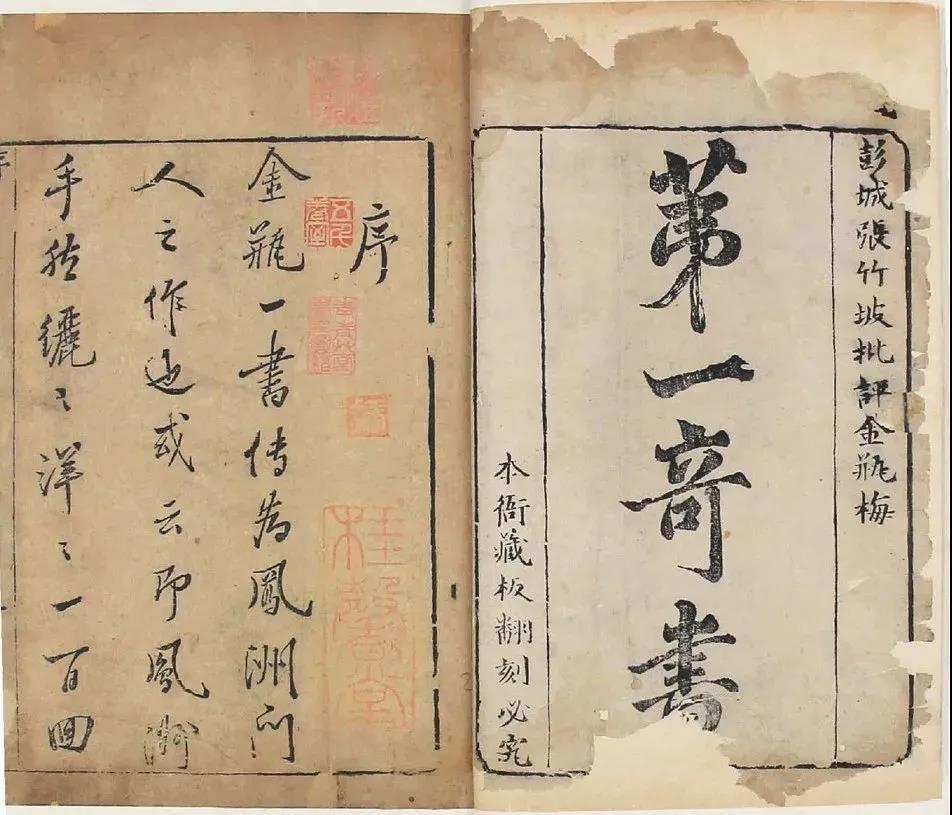 彭城張竹坡批評金瓶梅
第一奇書
本衙藏板翻刻必究
序
金瓶一書傳為鳳洲門
人之作也或云即鳳洲
手然纚〻洋〻一百回
桂馨堂